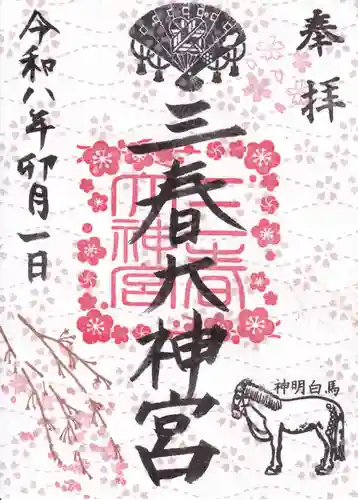 奉拝
三春大神宮
令和八年卯月一日
三春大神宮
神明白馬